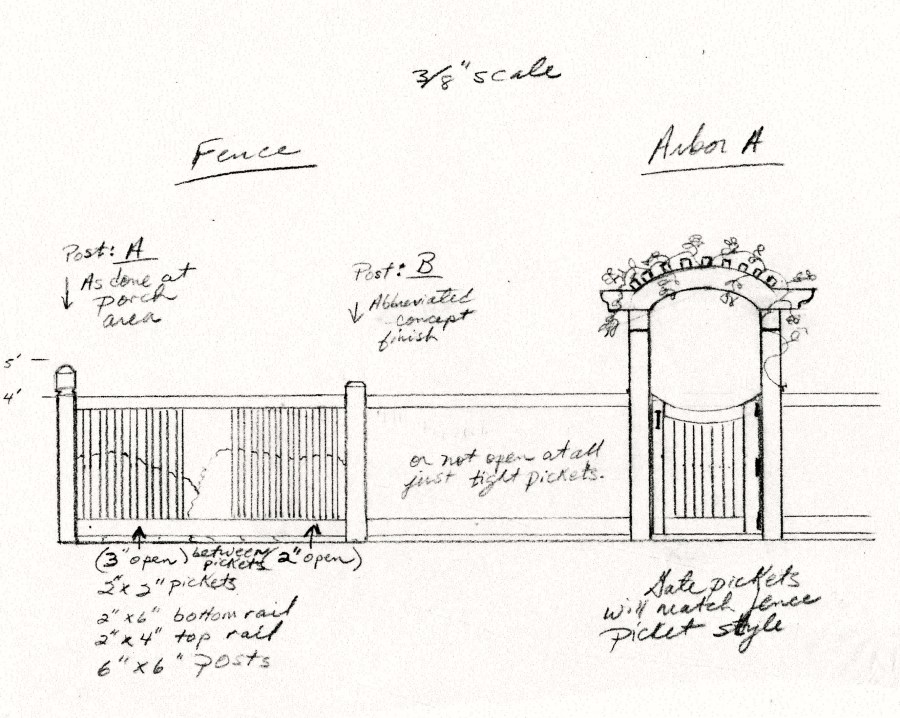 3/8" scale
Fence
Arbor A
Post: A
↓ As done at
porch
area
Post: B
↓ Abbreviated
concept
finish
5'
4'
or not open at all
just tight pickets.
(3" open) between pickets 2" open)
2" x 2" pickets
2" x 6" bottom rail
2" x 4" top rail
6" x 6" posts
Gate pickets
will match fence
picket style